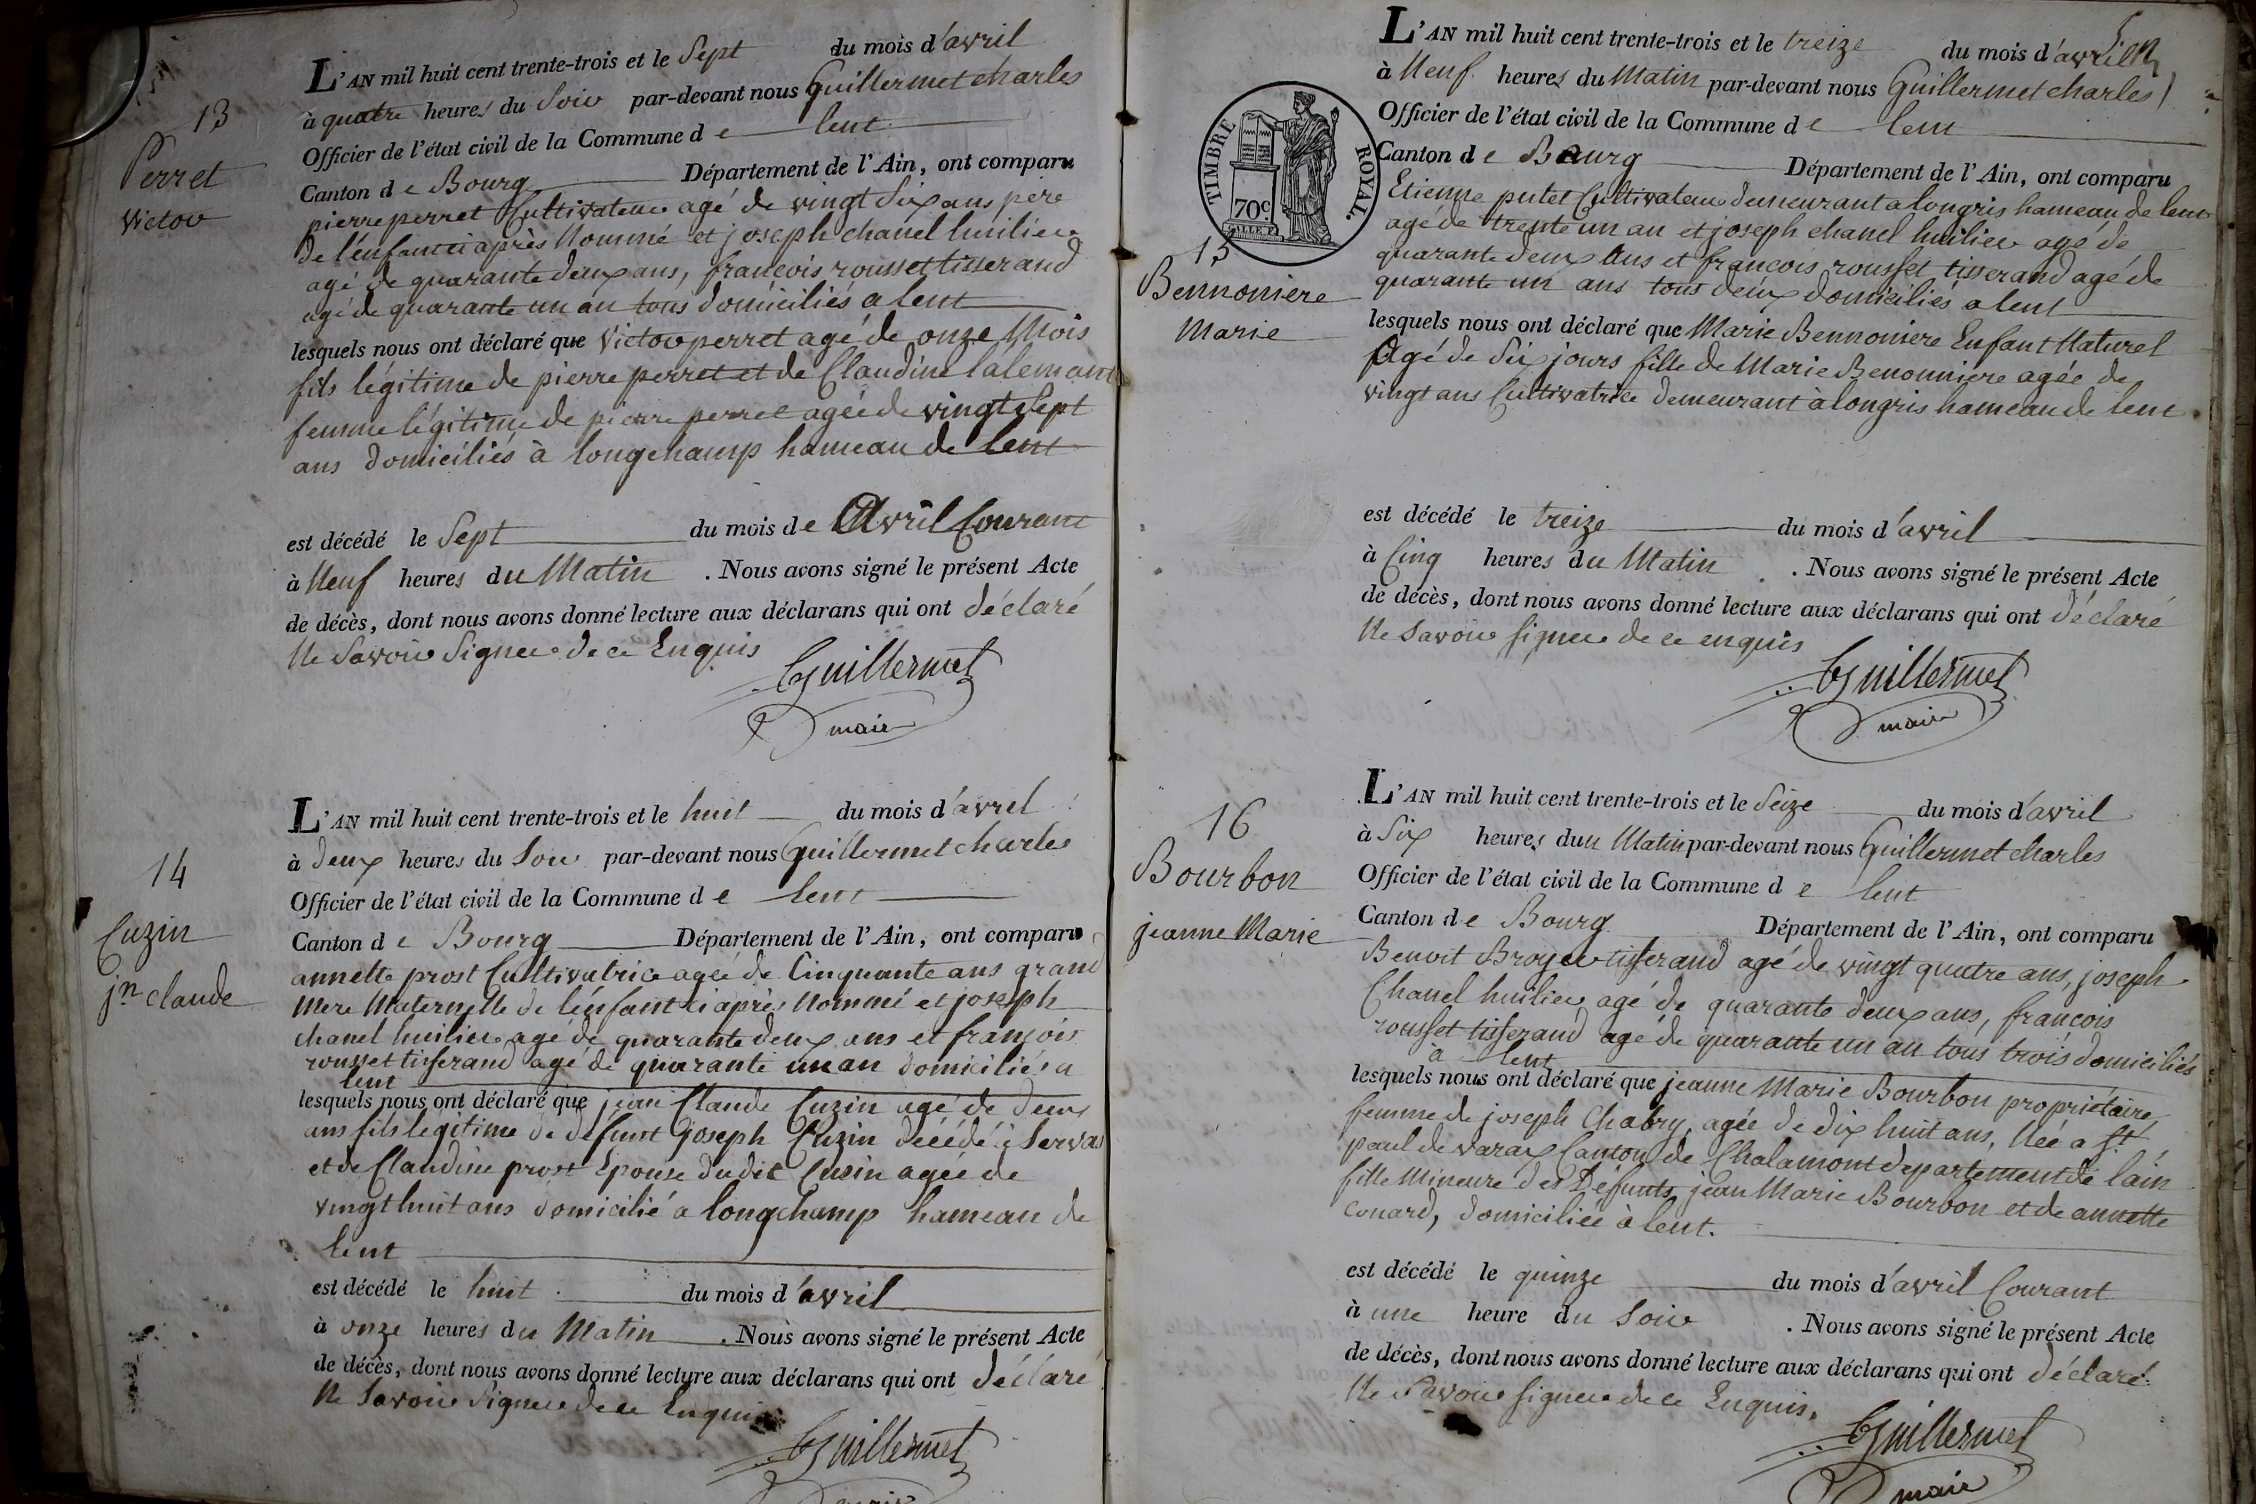 13
Perret
Victor
L'AN mil huit cent trente-trois et le Sept du mois d'avril
à quatre heures du Soir par-devant nous Guillermet charles
Officier de l'état civil de la Commune de lent
Canton de Bourg Département de l'Ain, ont comparu
pierre perret Cultivateur agé de vingt Six ans père
de l'enfant ci après Nommé et joseph chanel huilier
agé de quarante deux ans, francois rousset tisserand
agé de quarante un an tous domiciliés a lent
lesquels nous ont déclaré que Victor perret agé de onze Mois
fils légitime de pierre perret et de Claudine lalemant
femme légitime de pierre perret agée de vingt Sept
ans domiciliés à longchamp hameau de lent
est décédé le Sept du mois de Avril Courant
à Neuf heures du Matin. Nous avons signé le présent Acte
de décès, dont nous avons donné lecture aux déclarans qui ont déclaré
Ne Savoir Signer de ce Enquis
Guillermet
maire
14
Cuzin
jn claude
L'AN mil huit cent trente-trois et le huit du mois d'avril
à deux heures du Soir par-devant nous Guillermet charles
Officier de l'état civil de la Commune de lent
Canton de Bourg Département de l'Ain, ont comparu
annette prost Cultivatrice agée de Cinquante ans grand
Mere Maternelle de l'enfant ci après Nommé et joseph
chanel huilier agé de quarante deux ans et françois
rousset tisserand agé de quarante un an domiciliés a
lent
lesquels nous ont déclaré que jean Claude Cuzin agé de deux
ans fils légitime de défunt joseph Cuzin décédé à Servas
et de Claudine prost Epouse dudit Cuzin agée de
vingt huit ans domicilié a longchamp hameau de
lent
est décédé le huit du mois d'avril
à onze heures du Matin. Nous avons signé le présent Acte
de décès, dont nous avons donné lecture aux déclarans qui ont déclaré
Ne Savoir Signer de ce Enquis
Guillermet
maire
L'AN mil huit cent trente-trois et le treize du mois d'avril
à Neuf heures du Matin par-devant nous Guillermet charles
Officier de l'état civil de la Commune de lent
TIMBRE ROYAL.
70c
15
Bennoniere
Marie
Canton de Bourg Département de l'Ain, ont comparu
Etienne putet Cultivateur demeurant a longris hameau de lent
agé de trente un an et joseph chanel huilier agé de
quarante deux Ans et francois rousset tisserand agé de
quarante un ans tous deux domiciliés a lent
lesquels nous ont déclaré que Marie Bennoniere Enfant Naturel
Agé de Six jours fille de Marie Benonniere agée de
vingt ans Cultivatrice demeurant à longris hameau de lent
est décédé le treize du mois d'avril
à Cinq heures du Matin. Nous avons signé le présent Acte
de décès, dont nous avons donné lecture aux déclarans qui ont déclaré
Ne Savoir signer de ce enquis
Guillermet
maire
16
Bourbon
jeanne Marie
L'AN mil huit cent trente-trois et le Seize du mois d'avril
à Six heures du Matin par-devant nous Guillermet charles
Officier de l'état civil de la Commune de lent
Canton de Bourg Département de l'Ain, ont comparu
Benoit Broyer tisserand agé de vingt quatre ans, joseph
Chanel huilier agé de quarante deux ans, francois
rousset tisserand agé de quarante un an tous trois domiciliés
à lent
lesquels nous ont déclaré que jeanne Marie Bourbon propriétaire
femme de joseph Chabry, agée de dix huit ans, Née a St
paul de varax Canton de Chalamont departement de lain
fille Mineure des Défunts jean Marie Bourbon et de annette
Couard, domiciliée à lent.
est décédé le quinze du mois d'avril Courant
à une heure du Soir. Nous avons signé le présent Acte
de décès, dont nous avons donné lecture aux déclarans qui ont déclaré
Ne Savoir signer de ce Enquis.
Guillermet
maire